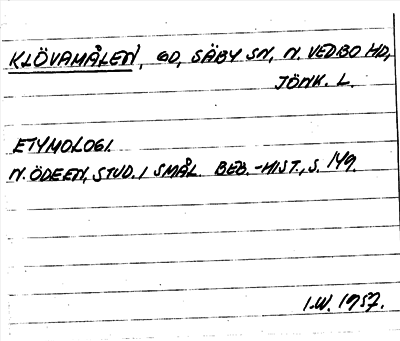 KLÖVAMÅLEN, GD, SÄBY SN, N. VEDBO HD,
JÖNK. L.
ETYMOLOGI.
N. ÖDEEN, STUD. I SMÅL. BEB.-HIST., S. 149.
I.W. 1957.